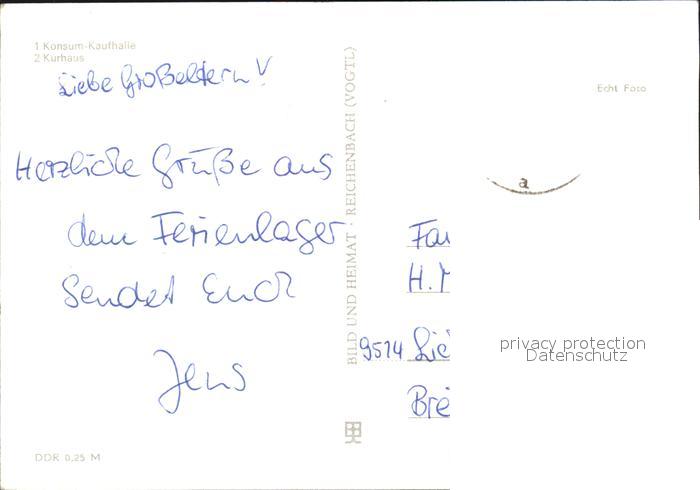 1 Konsum-Kaufhalle
2 Kurhaus
Liebe Großeltern!
Herzliche Grüße aus
dem Ferienlager
Sendet Euch
Jens
DDR 0,25 M
BILD UND HEIMAT · REICHENBACH (VOGTL)
Echt Foto
a
Fa
H.
9514 Lie
Bre
privacy protection
Datenschutz